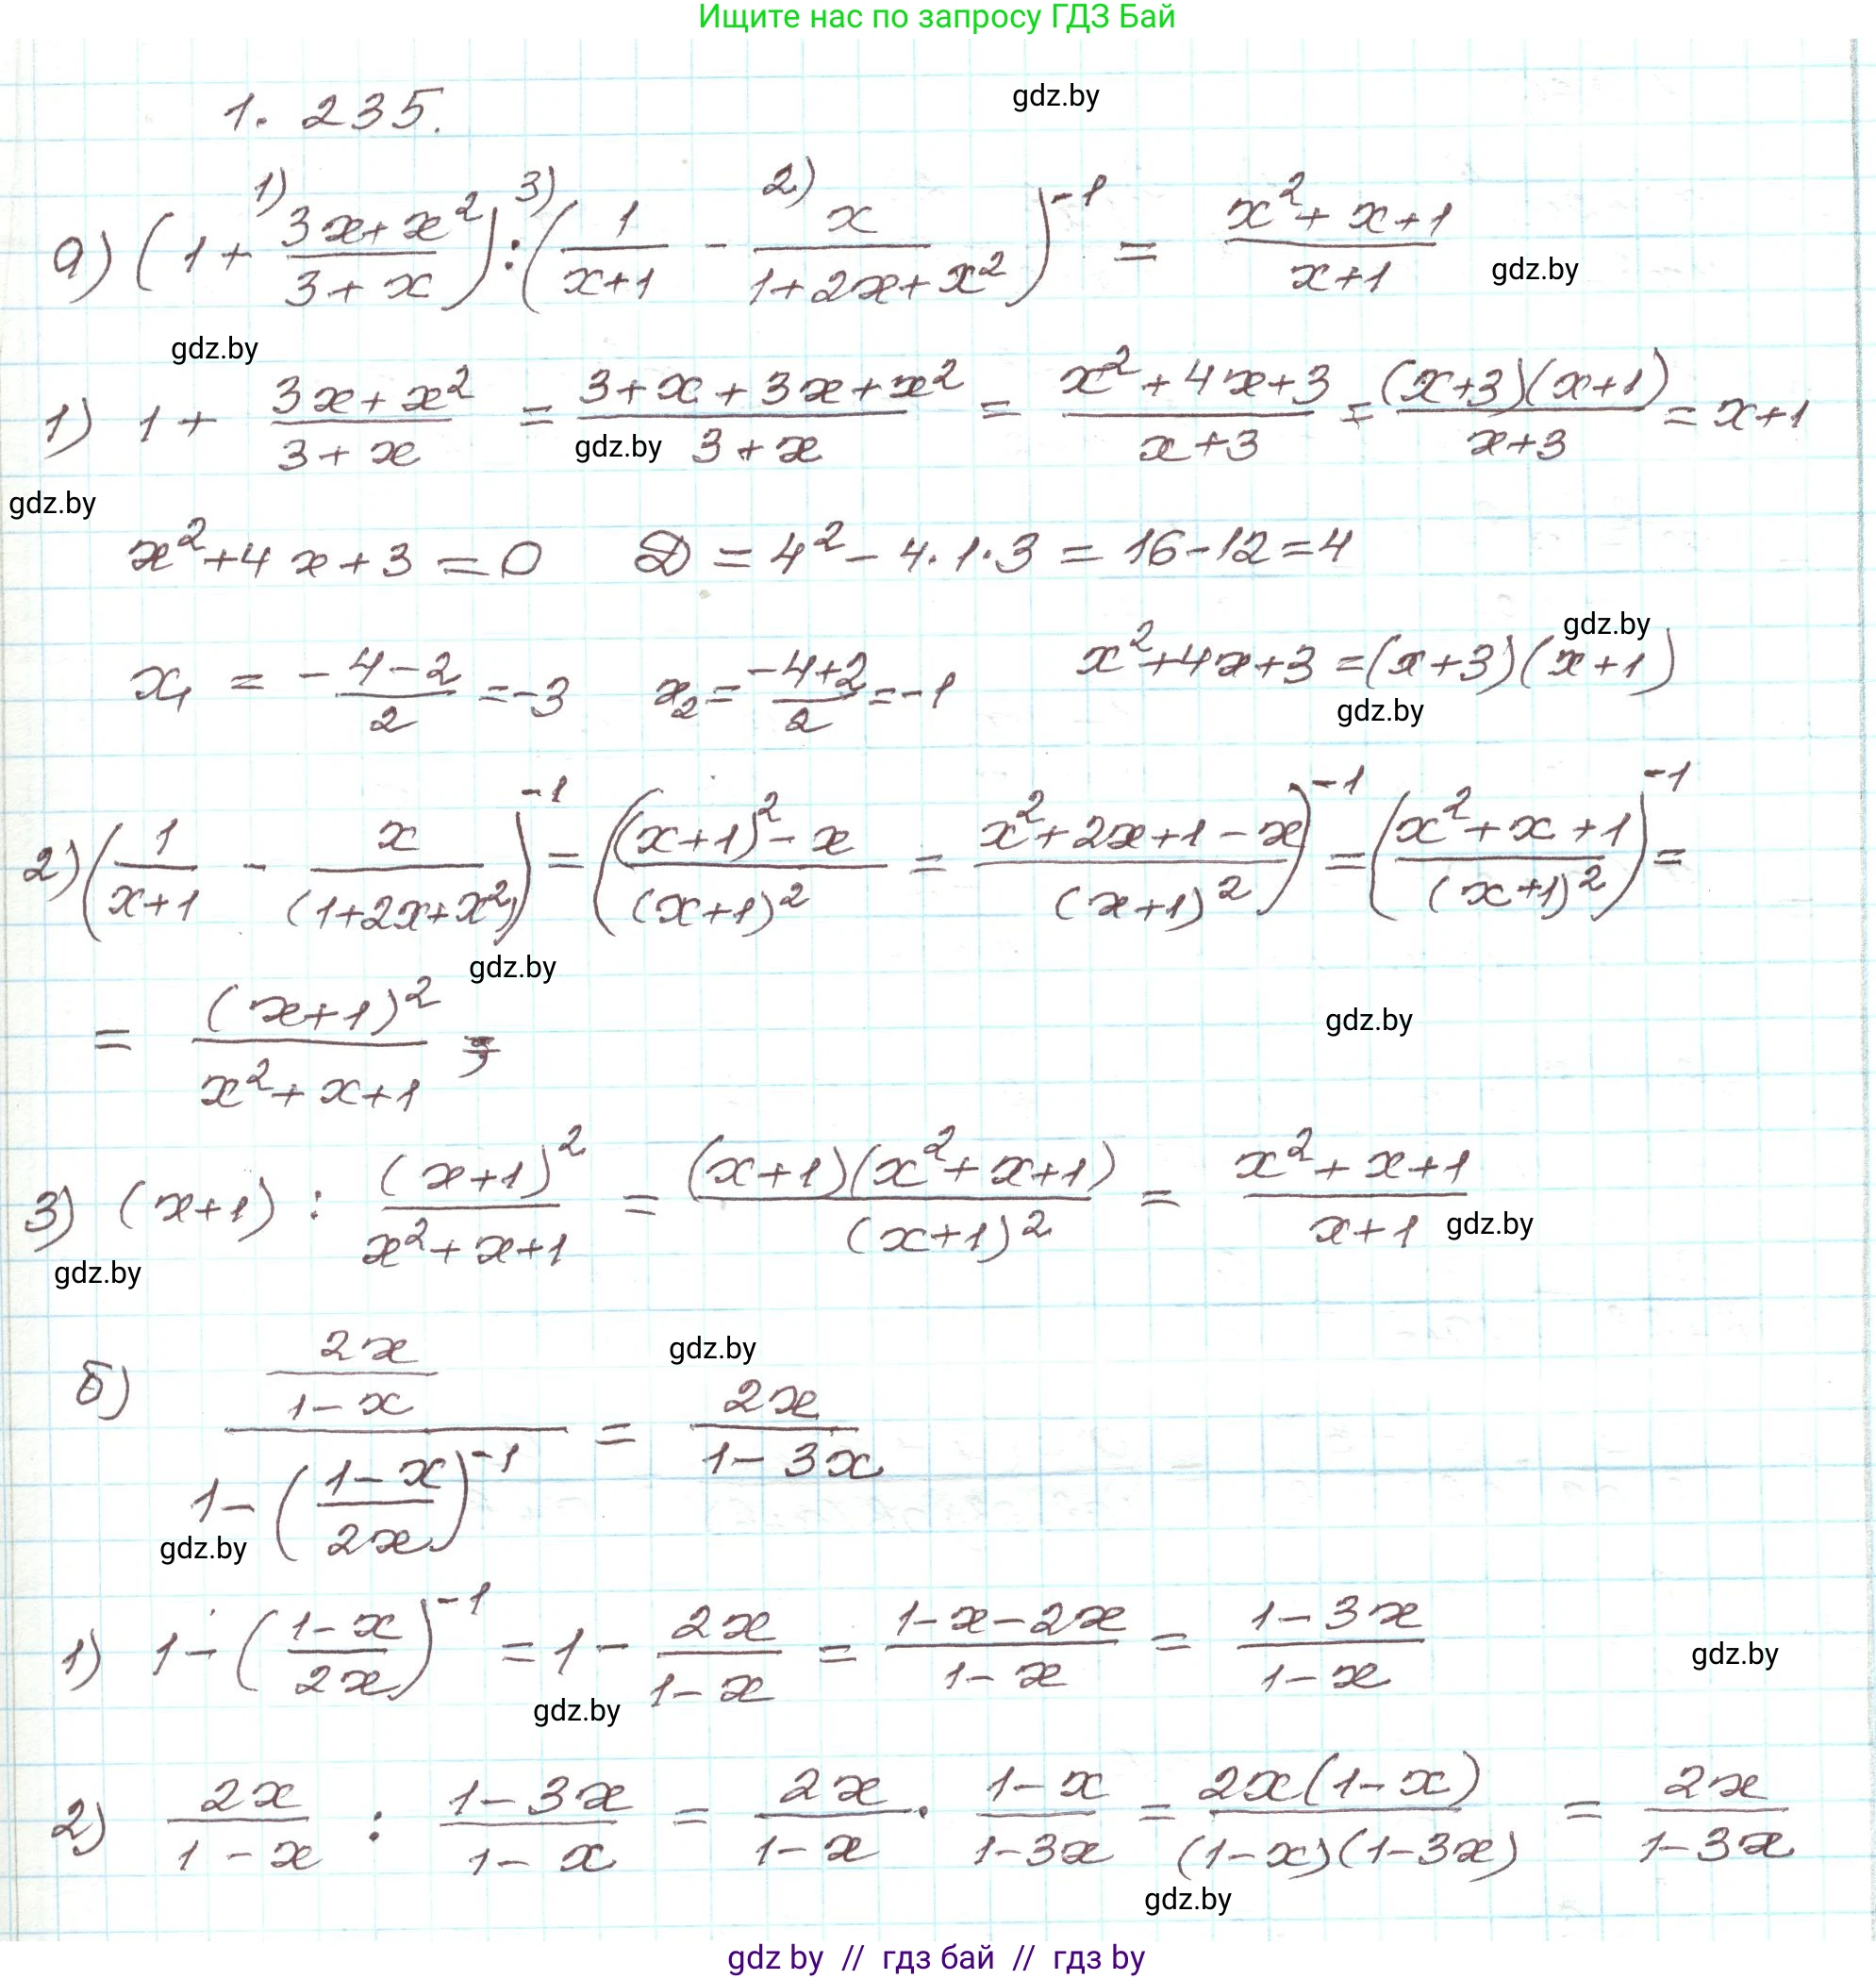 Ищите нас по запросу ГДЗ Бай
gdz.by
1. 235.
а) (1 + (3x+x²)/(3+x)) : (1/(x+1) - x/(1+2x+x²))⁻¹ = (x²+x+1)/(x+1)
1) 3) 2)
gdz.by
gdz.by
1) 1 + (3x+x²)/(3+x) = (3+x+3x+x²)/(3+x) = (x²+4x+3)/(x+3) = ((x+3)(x+1))/(x+3) = x+1
gdz.by
gdz.by
x²+4x+3=0 D = 4² - 4·1·3 = 16-12=4
gdz.by
x₁ = -(4-2)/2 = -3 x₂ = (-4+2)/2 = -1 x²+4x+3=(x+3)(x+1)
gdz.by
2) (1/(x+1) - x/(1+2x+x²))⁻¹ = (((x+1)²-x)/(x+1)² = (x²+2x+1-x)/(x+1)²)⁻¹ = ((x²+x+1)/(x+1)²)⁻¹ =
gdz.by
= (x+1)²/(x²+x+1) ;
gdz.by
3) (x+1) : (x+1)²/(x²+x+1) = ((x+1)(x²+x+1))/(x+1)² = (x²+x+1)/(x+1)
gdz.by
gdz.by
б) (2x/(1-x))/(1-((1-x)/2x)⁻¹) = 2x/(1-3x)
gdz.by
gdz.by
1) 1-((1-x)/2x)⁻¹ = 1 - 2x/(1-x) = (1-x-2x)/(1-x) = (1-3x)/(1-x)
gdz.by
gdz.by
2) 2x/(1-x) : (1-3x)/(1-x) = 2x/(1-x) · (1-x)/(1-3x) = (2x(1-x))/((1-x)(1-3x)) = 2x/(1-3x)
gdz.by
gdz by // гдз бай // гдз by